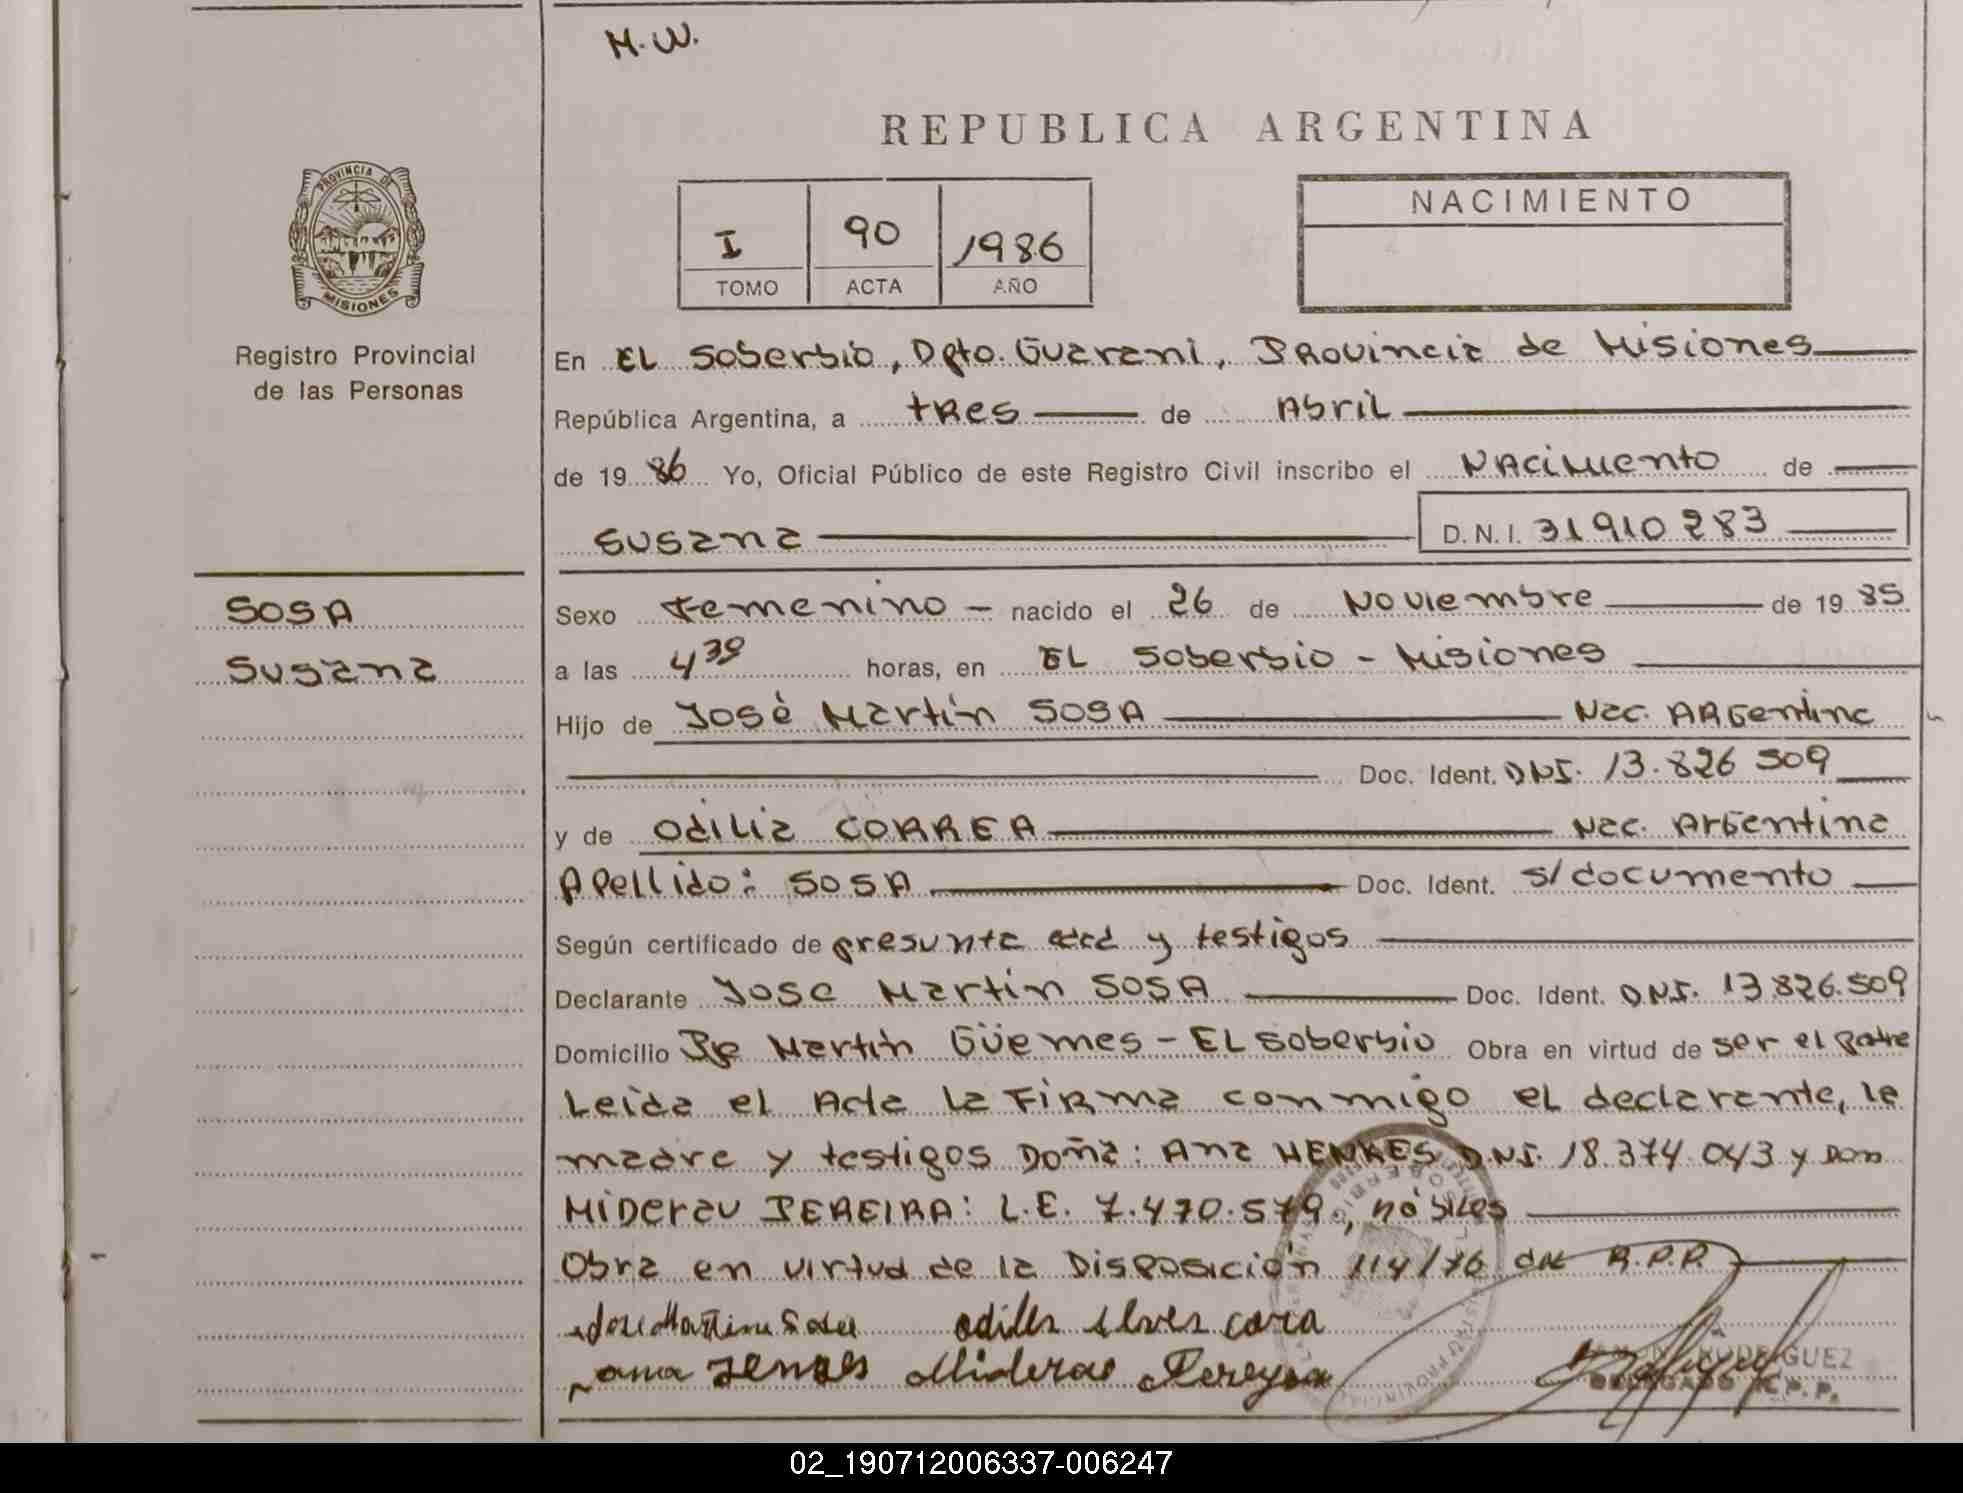 H.W.
REPUBLICA ARGENTINA
I 90 1986
TOMO ACTA AÑO
NACIMIENTO
PROVINCIA DE
MISIONES
Registro Provincial
de las Personas
En EL Soberbio, Dpto. Guarani, Provincia de Misiones
República Argentina, a tres de Abril
de 19 86 Yo, Oficial Público de este Registro Civil inscribo el Nacimiento de
Susana D.N.I. 31 910 283
SOSA
Susana
Sexo Femenino - nacido el 26 de Noviembre de 19 85
a las 4 30 horas, en EL Soberbio - Misiones
Hijo de José Martín SOSA Nac. Argentina
Doc. Ident. DNI. 13.826 509
y de Odilia CORREA Nac. Argentina
Apellido: SOSA Doc. Ident. s/documento
Según certificado de presunta edad y testigos
Declarante Jose Martín SOSA Doc. Ident. DNI. 13.826.509
Domicilio Martín Güemes - EL Soberbio Obra en virtud de ser el padre
Leida el Acta la Firma conmigo el declarante, la
madre y testigos Doña: Ana HENKES DNI. 18.374.043 y Don
Miderau PEREIRA: L.E. 7.470.579,
Obra en virtud de la Disposición 114/76 del R.P.P.
Ana
Miderau Pereyra
RODRIGUEZ
DELEGADO R.P.P.
02_190712006337-006247